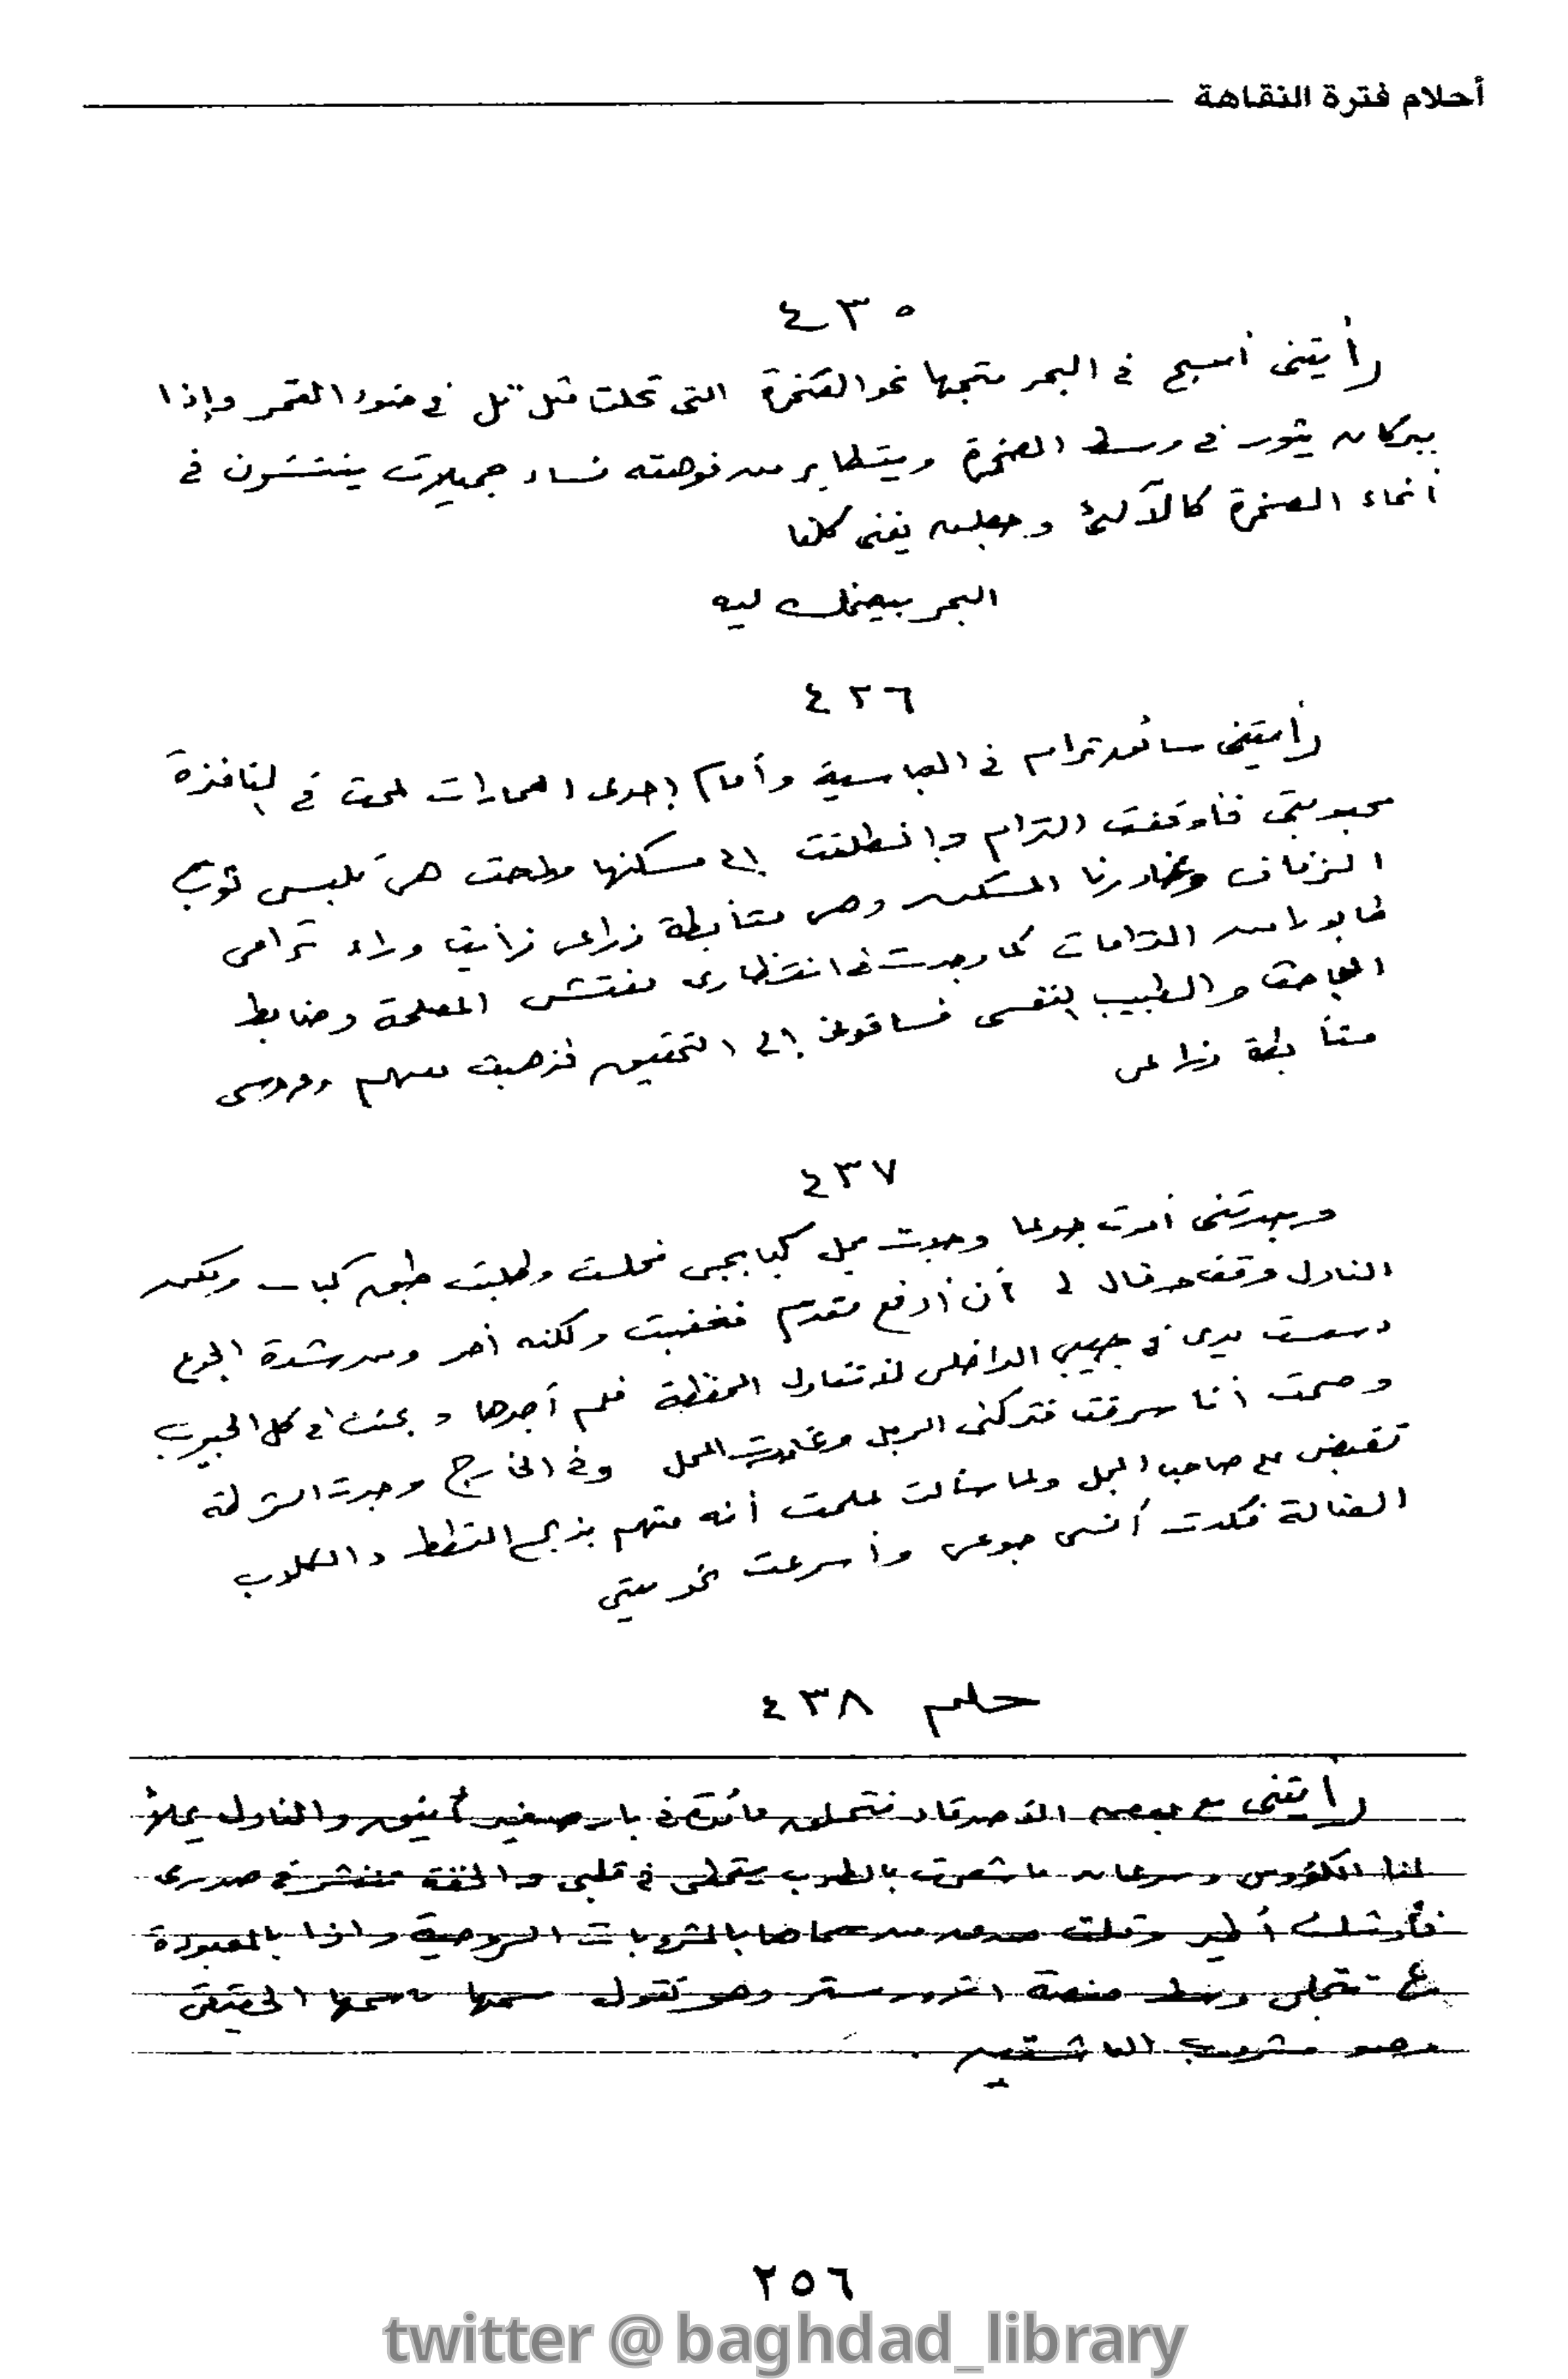 أحلام فترة النقاهة
٤٣٥
رأيتنى أسبح فى البحر متجها نحو الصخرة التى تجلت مثل تل فى ضوء القمر وإذا
ببركان يثور فى وسط الصخرة ويتطاير من فوهته نساء جميلات ينتشرن فى
أنحاء الصخرة كاللآلئ وجعلن يغنى كلنا
البحر بيضحك ليه
٤٢٦
رأيتنى سائق ترام فى العباسية وأمام إحدى العمارات لمحت فى النافذة
محبوبتى فأوقفت الترام وانطلقت إلى مسكنها هى تلبس ثوب
الزفاف وغادرنا المسكن وهى متأبطة ذراعى فرأيت وراء ترامى
طابورا من الترامات كما وجدت فى انتظارى مفتش المصلحة وضابط
المباحث والطبيب النفسى فساقونى إلى التحقيق فذهبت معهم وعروسى
متأبطة ذراعى
٤٣٧
وجدتنى أموت جوعا وجدت محل كبابجى فجلست وطلبت طبق كباب ولكن
النادل وقف وقال لى أن أدفع مقدم فغضبت ولكنه أصر ومن شدة الجوع
دسست يدى فى جيبى الداخلى لأتناول المحفظة فلم أجدها وبحثت فى كل الجيوب
وصحت أنا سرقت فتركنى الرجل وغادرت المحل وفى الخارج وجدت الشرطة
تقبض على صاحب المحل ولما سألت علمت أنه متهم بذبح القطط والكلاب
الضالة فكدت أنسى جوعى وأسرعت نحو بيتى
حلم ٤٣٨
رأيتنى مع بعض الأصدقاء نتحلق مائدة فى بار صغير أنيق والنادل يملأ
لنا الكؤوس وسرعان ما شعرت بالطرب يتمطى فى قلبى والخفة تنتشر فى صدرى
فأوشكت أطير وقلت صدق من سماها بالمشروبات الروحية وإذا بالمعبودة
ع تتجلى وسط منصة الأوركستر وهى تقول سمها باسمها الحقيقى
وهو مشروب العاشقين .
٢٥٦
twitter @baghdad_library